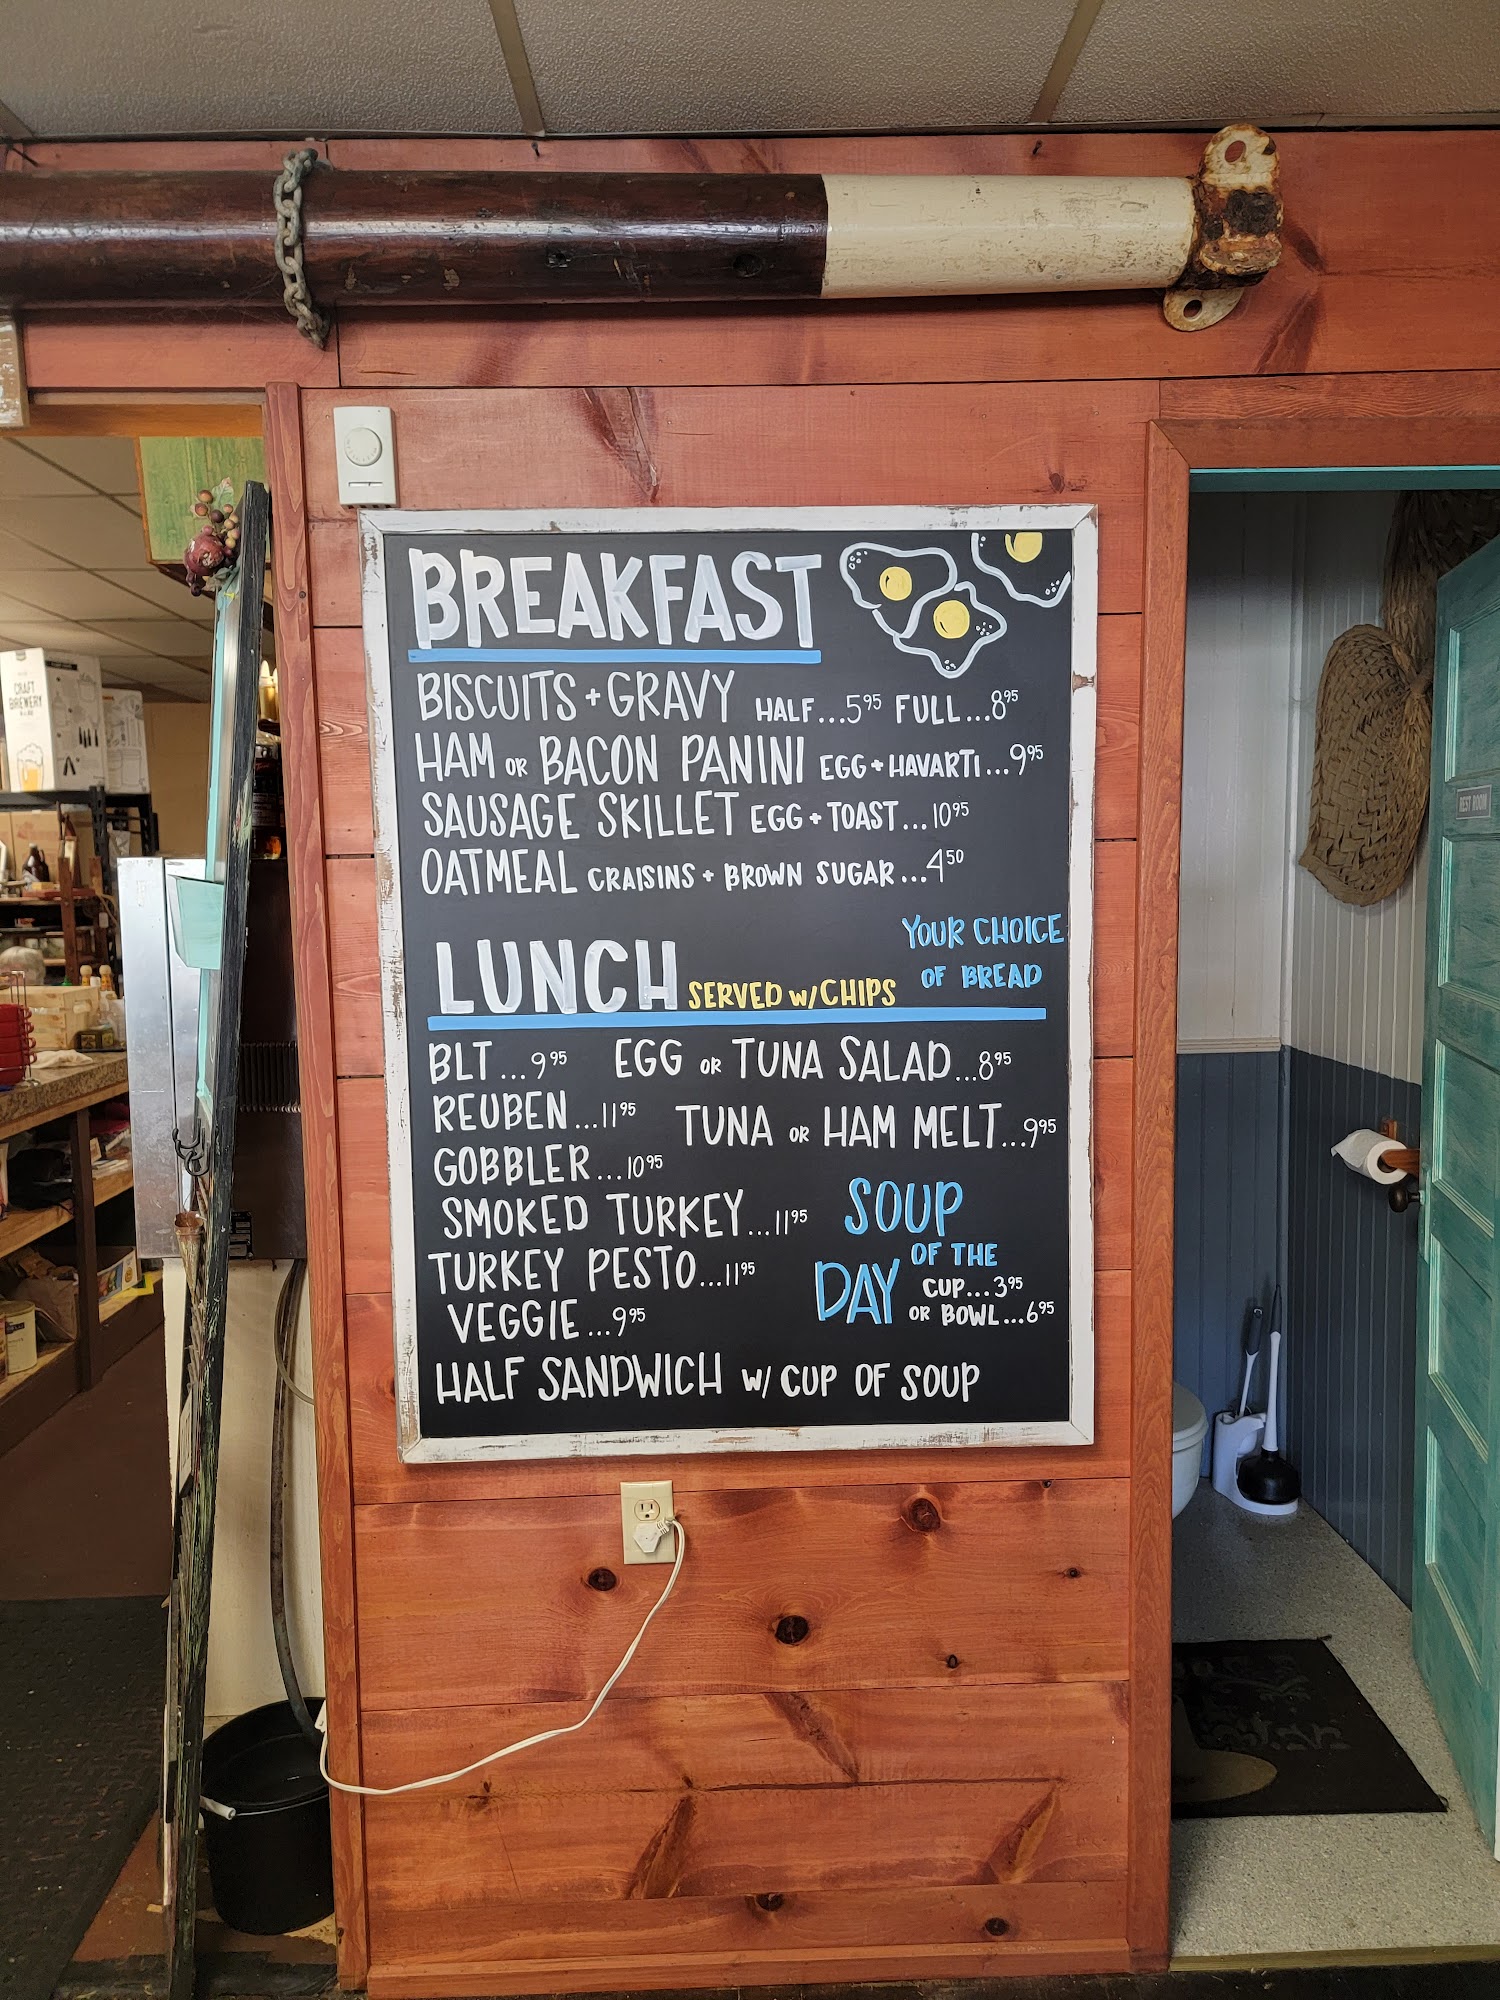 BREAKFAST
BISCUITS + GRAVY HALF...5⁹⁵ FULL...8⁹⁵
HAM OR BACON PANINI EGG + HAVARTI...9⁹⁵
SAUSAGE SKILLET EGG + TOAST...10⁹⁵
OATMEAL CRAISINS + BROWN SUGAR...4⁵⁰
YOUR CHOICE
OF BREAD
LUNCH SERVED W/ CHIPS
BLT...9⁹⁵ EGG OR TUNA SALAD...8⁹⁵
REUBEN...11⁹⁵ TUNA OR HAM MELT...9⁹⁵
GOBBLER...10⁹⁵
SMOKED TURKEY...11⁹⁵
TURKEY PESTO...11⁹⁵
VEGGIE...9⁹⁵
SOUP
OF THE
DAY
CUP...3⁹⁵
OR BOWL...6⁹⁵
HALF SANDWICH W/ CUP OF SOUP
CRAFT
BREWERY
REST ROOM